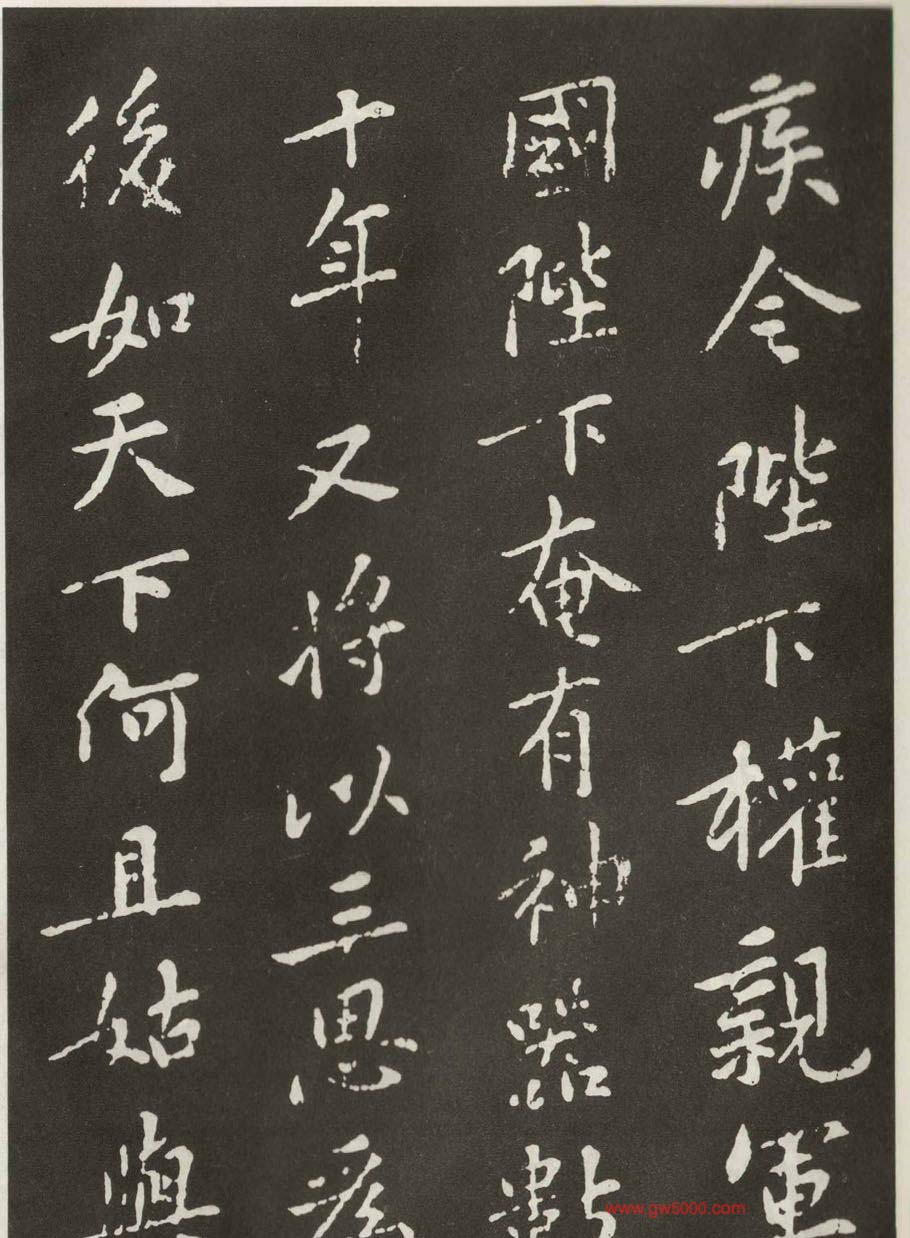 疾令陛下權親軍
國陛下奄有神器數
十年又將以三思為
後如天下何且姑與
www.gw5000.com